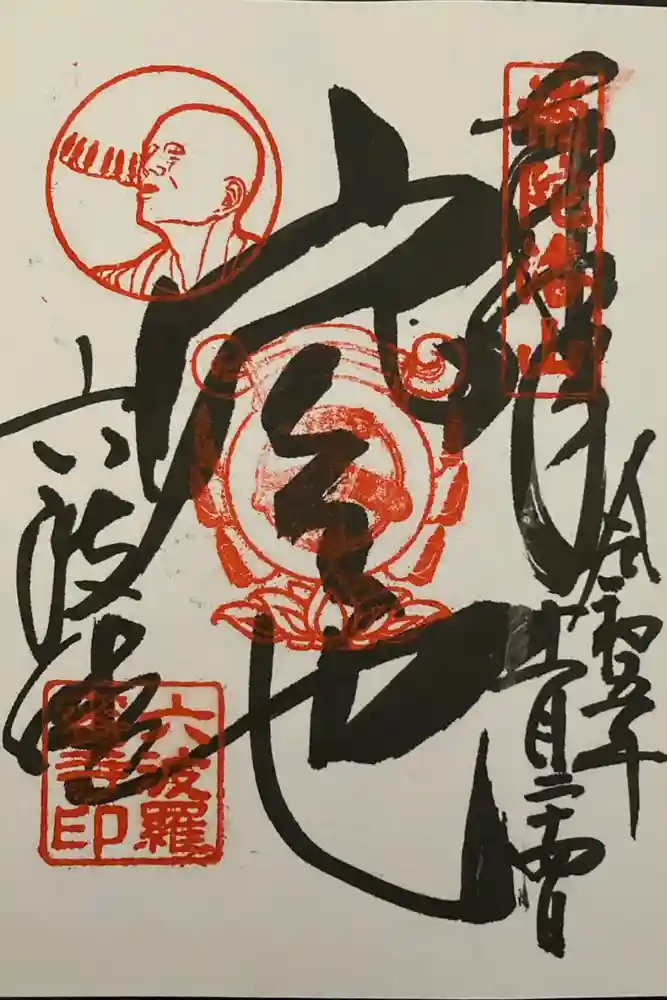 補陀洛山
令和五年
十一月二十四日
空也
六波
六波羅
蜜寺印